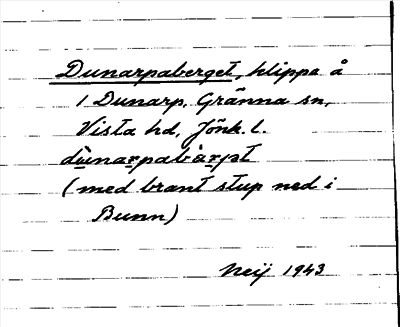 Dunarpaberget, klippa å
1 Dunarp, Gränna sn,
Vista hd, Jönk. l.
dùnarpabàrjət
(med brant stup ned i
Bunn)
Neij 1943